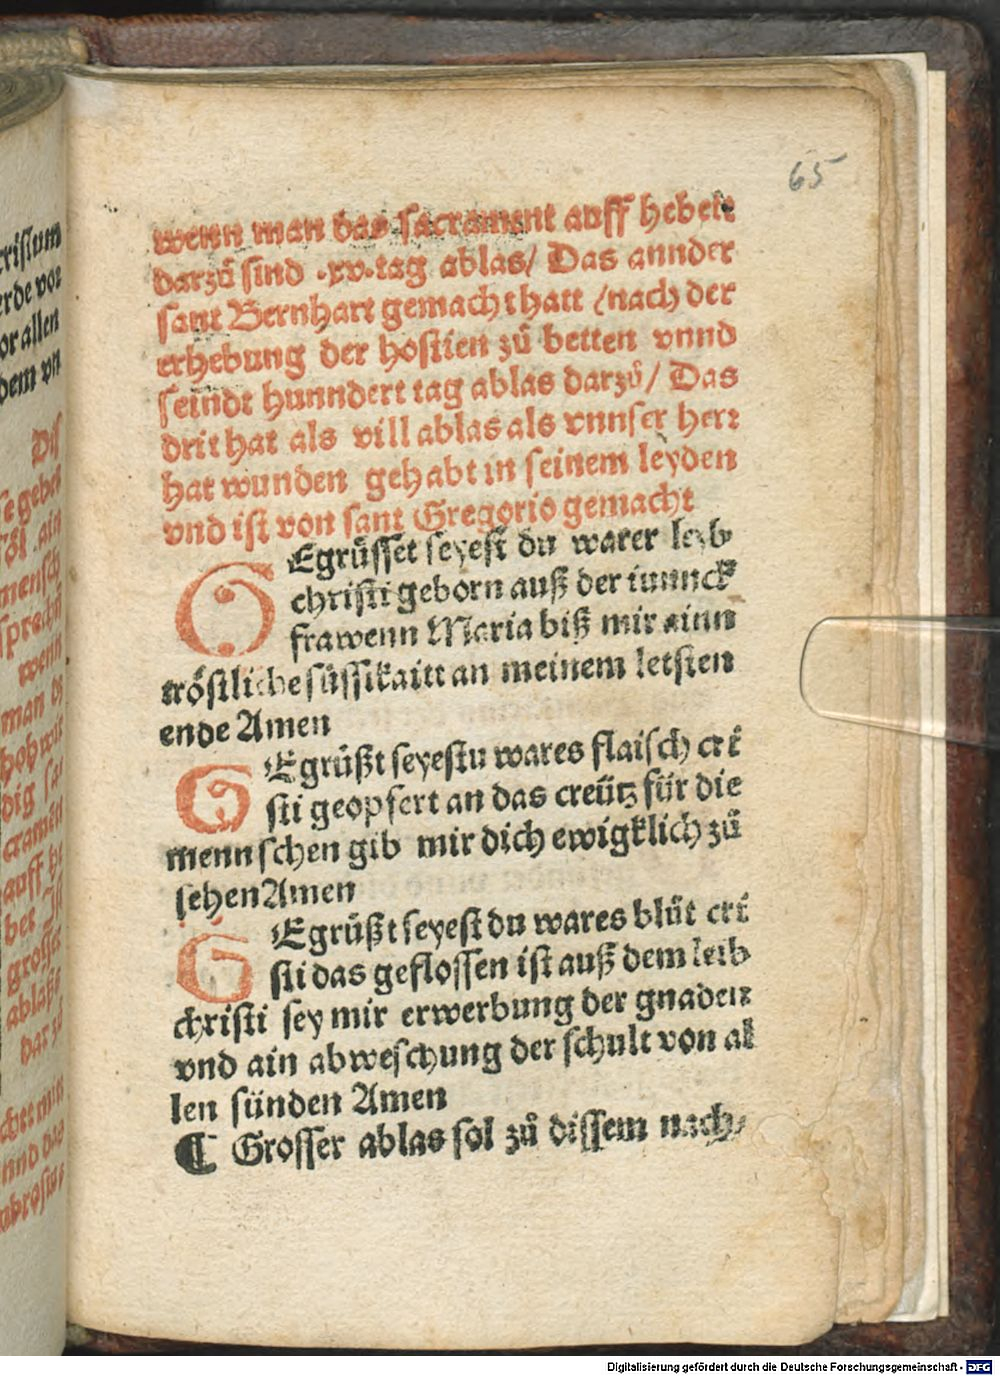 65
wenn man das sacrament auff hebett
darzů sind .xv. tag ablas/ Das annder
sant Bernhart gemacht hatt /nach der
erhebung der hostien zů betten vnnd
seindt hunndert tag ablas darzů/ Das
drit hat als vill ablas als vnnser herr
hat wunden gehabt in seinem leyden
vnd ist von sant Gregorio gemacht
GEgrüsset seyest du warer leyb
christi geborn auß der iunnck
frawenn Maria biß mir ainn
tröstliche süssikaitt an meinem letsten
ende Amen
GEgrüßt seyestu wares flaisch cri
sti geopfert an das creütz für die
mennschen gib mir dich ewigklich zů
sehen Amen
GEgrüßt seyest du wares blůt cri
sti das geflossen ist auß dem leib
christi sey mir erwerbung der gnaden
vnd ain abweschung der schult von al
len sünden Amen
¶ Grosser ablas sol zů dissem nach/
cristum
erde vor
or allen
dem vn
Dis
se gebet
sol ain
mensch
sprechn
wenn
man ds
dig sa
crament
auff he
bet
grosser
ablaß
dar zů
Digitalisierung gefördert durch die Deutsche Forschungsgemeinschaft - DFG